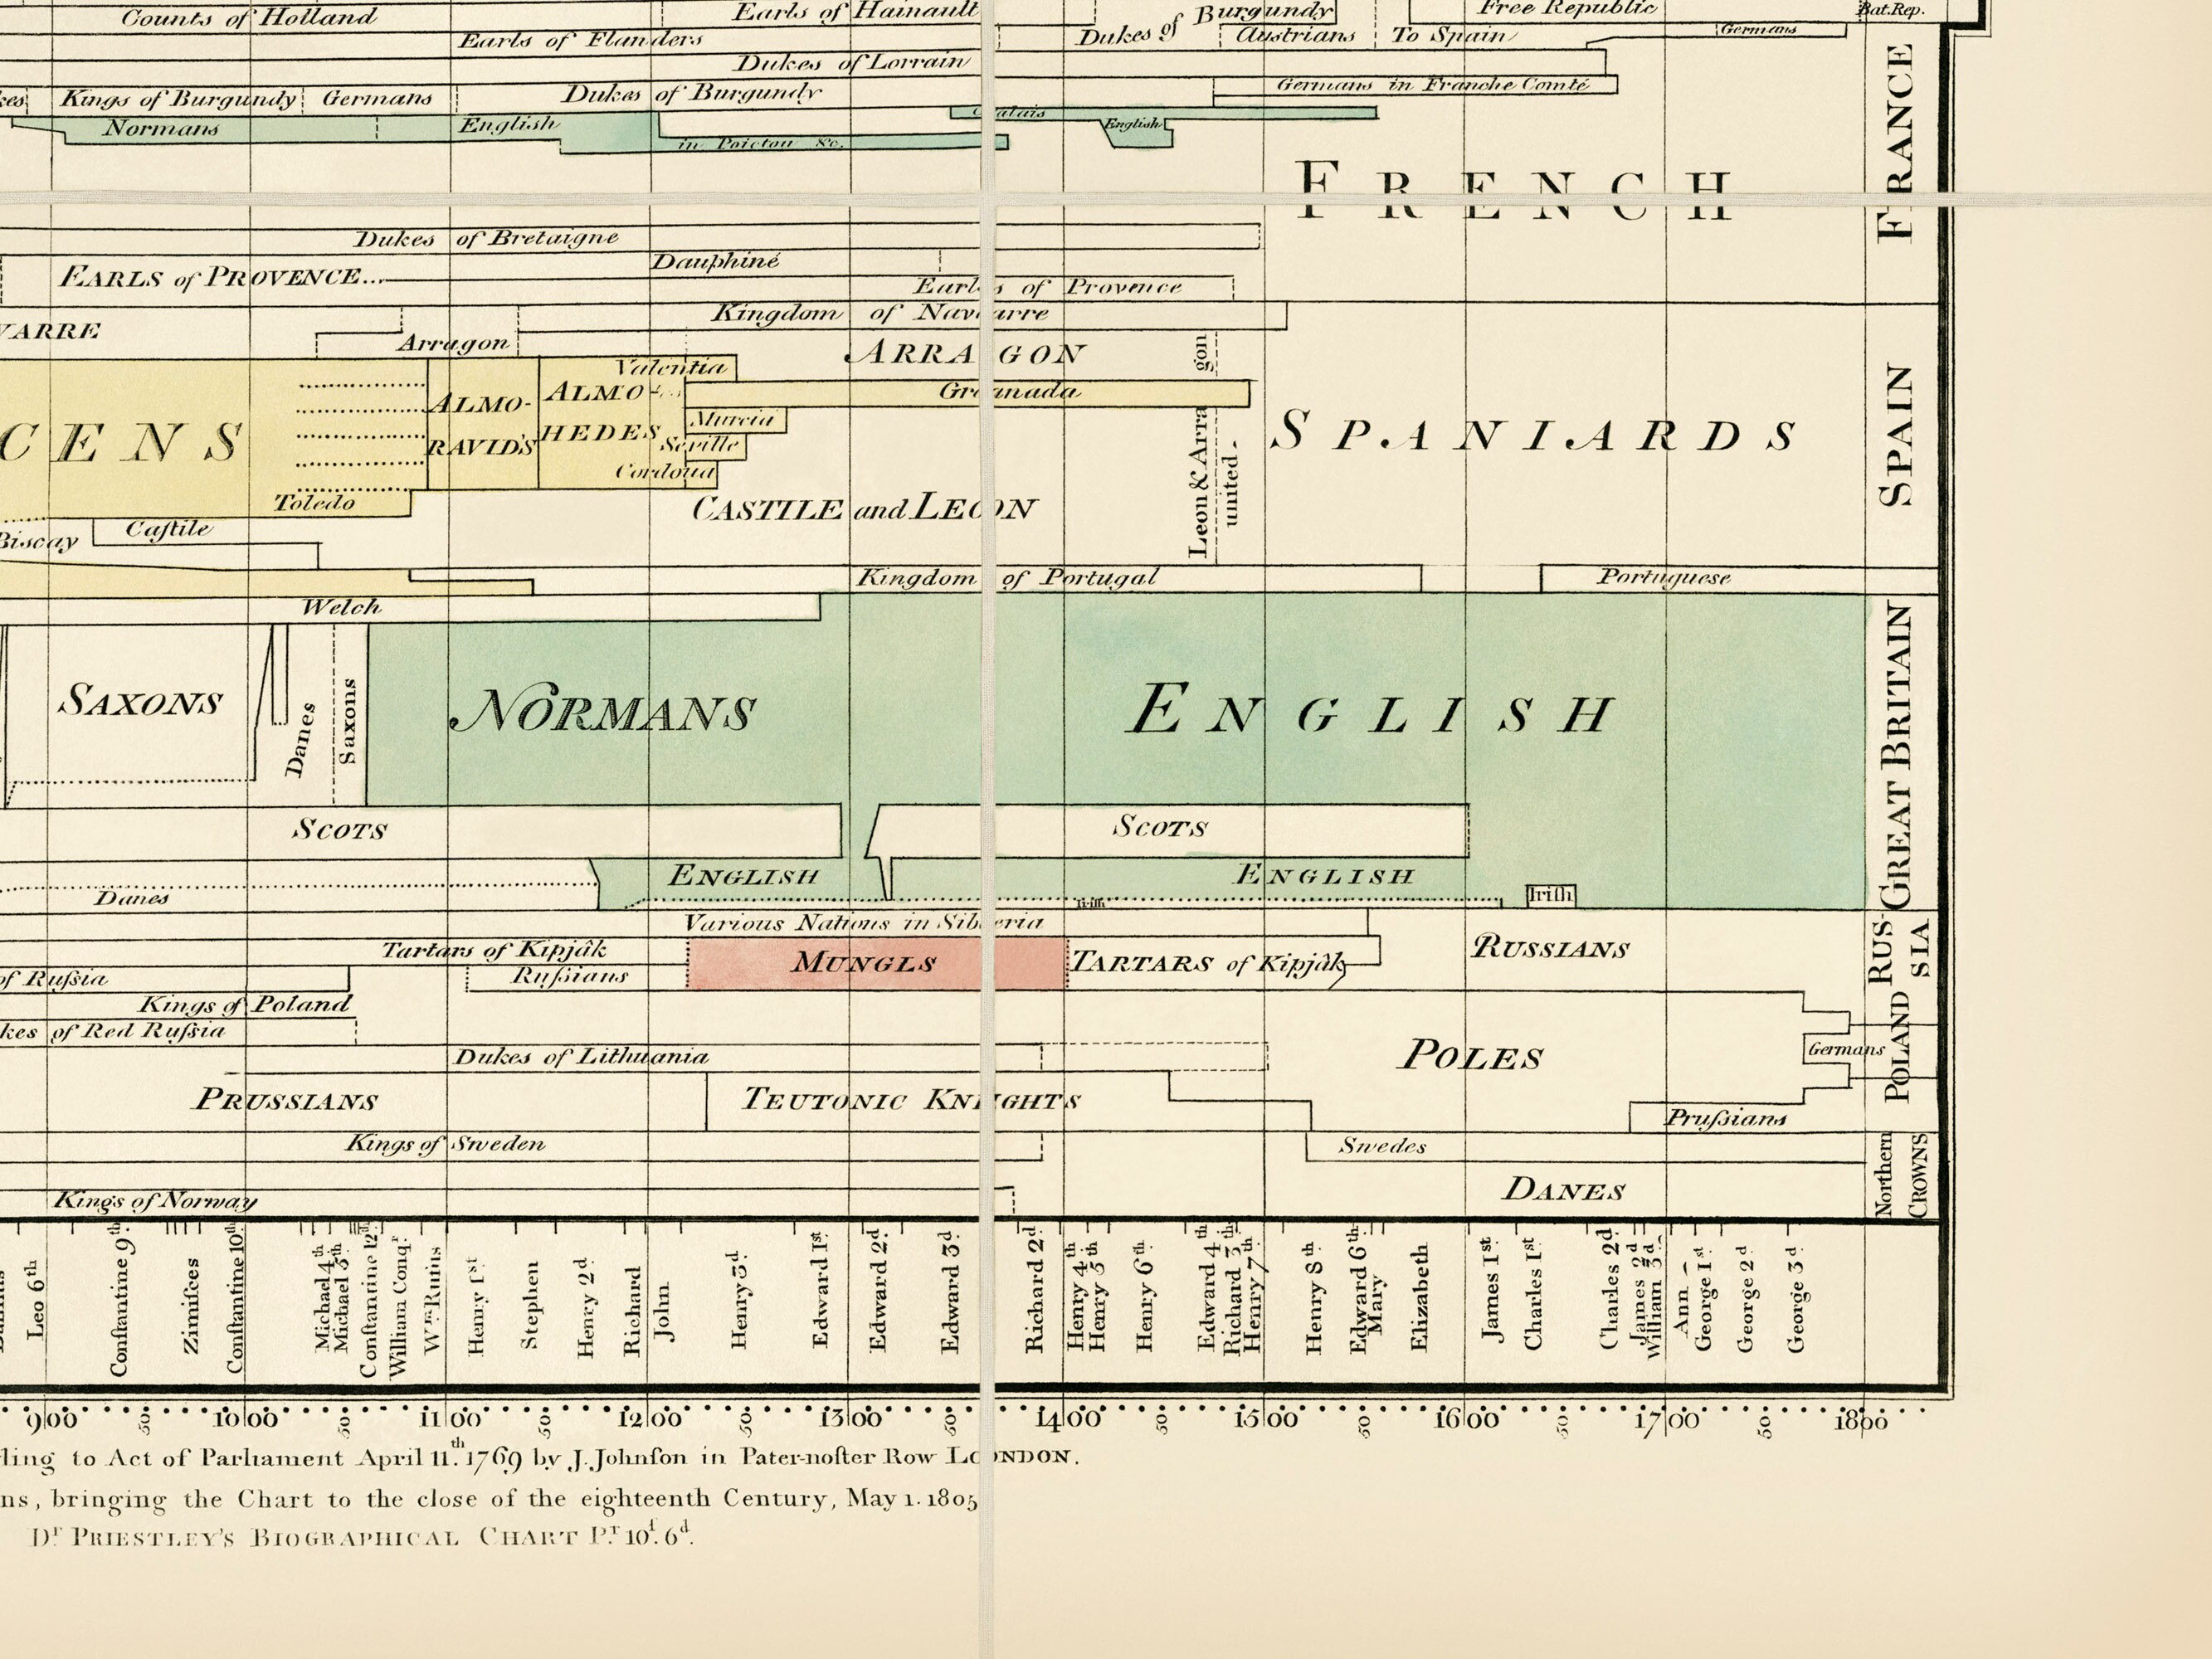 Counts of Holland
Earls of Hainault
Burgundy
Free Republic
Bat.Rep.
Earls of Flanders
Dukes of
Austrians
To Spain
Germans
Dukes of Lorrain
Kings of Burgundy
Germans
Dukes of Burgundy
Germans in Franche Comté
Normans
English
Calais
English
in Poictou &c.
FRENCH
FRANCE
Dukes of Bretaigne
Dauphiné
EARLS of PROVENCE...
Earls of Provence
Kingdom of Navarre
VARRE
Arragon
ARRAGON
Valentia
Granada
ALMO-
RAVIDS
ALMO-
HEDES
Murcia
Seville
Cordoua
CENS
Toledo
CASTILE and LEON
Leon & Arra gon
united
SPANIARDS
SPAIN
Biscay
Caſtile
Kingdom of Portugal
Portuguese
Welch
SAXONS
Danes
Saxons
NORMANS
ENGLISH
GREAT BRITAIN
SCOTS
SCOTS
ENGLISH
ENGLISH
Danes
Iriſh
Iriſh
Various Nations in Siberia
Tartars of Kipjâk
MUNGLS
TARTARS of Kipjâk
RUSSIANS
RUS-
SIA
of Ruſsia
Ruſsians
Kings of Poland
kes of Red Ruſsia
Dukes of Lithuania
POLES
Germans
POLAND
PRUSSIANS
TEUTONIC KNIGHTS
Pruſsians
Kings of Sweden
Swedes
Northern
CROWNS
Kings of Norway
DANES
Leo 6th
Conſtantine 9th
Zimiſces
Conſtantine 10th
Michael 4th
Michael 5th
Conſtantine 12th
William Conqr.
Wm. Rufus
Henry 1st
Stephen
Henry 2d
Richard
John
Henry 3d
Edward 1st
Edward 2d
Edward 3d
Richard 2d
Henry 4th
Henry 5th
Henry 6th
Edward 4th
Richard 3d
Henry 7th
Henry 8th
Edward 6th
Mary
Elizabeth
James 1st
Charles 1st
Charles 2d
James 2d
William 3d
Ann
George 1st
George 2d
George 3d
900 50 1000 50 1100 50 1200 50 1300 50 1400 50 1500 50 1600 50 1700 50 1800
ding to Act of Parliament April 11.th 1769 by J. Johnſon in Pater-noſter Row LONDON.
ns, bringing the Chart to the close of the eighteenth Century, May 1. 1805
Dr. PRIESTLEY'S BIOGRAPHICAL CHART Pr. 10s. 6d.